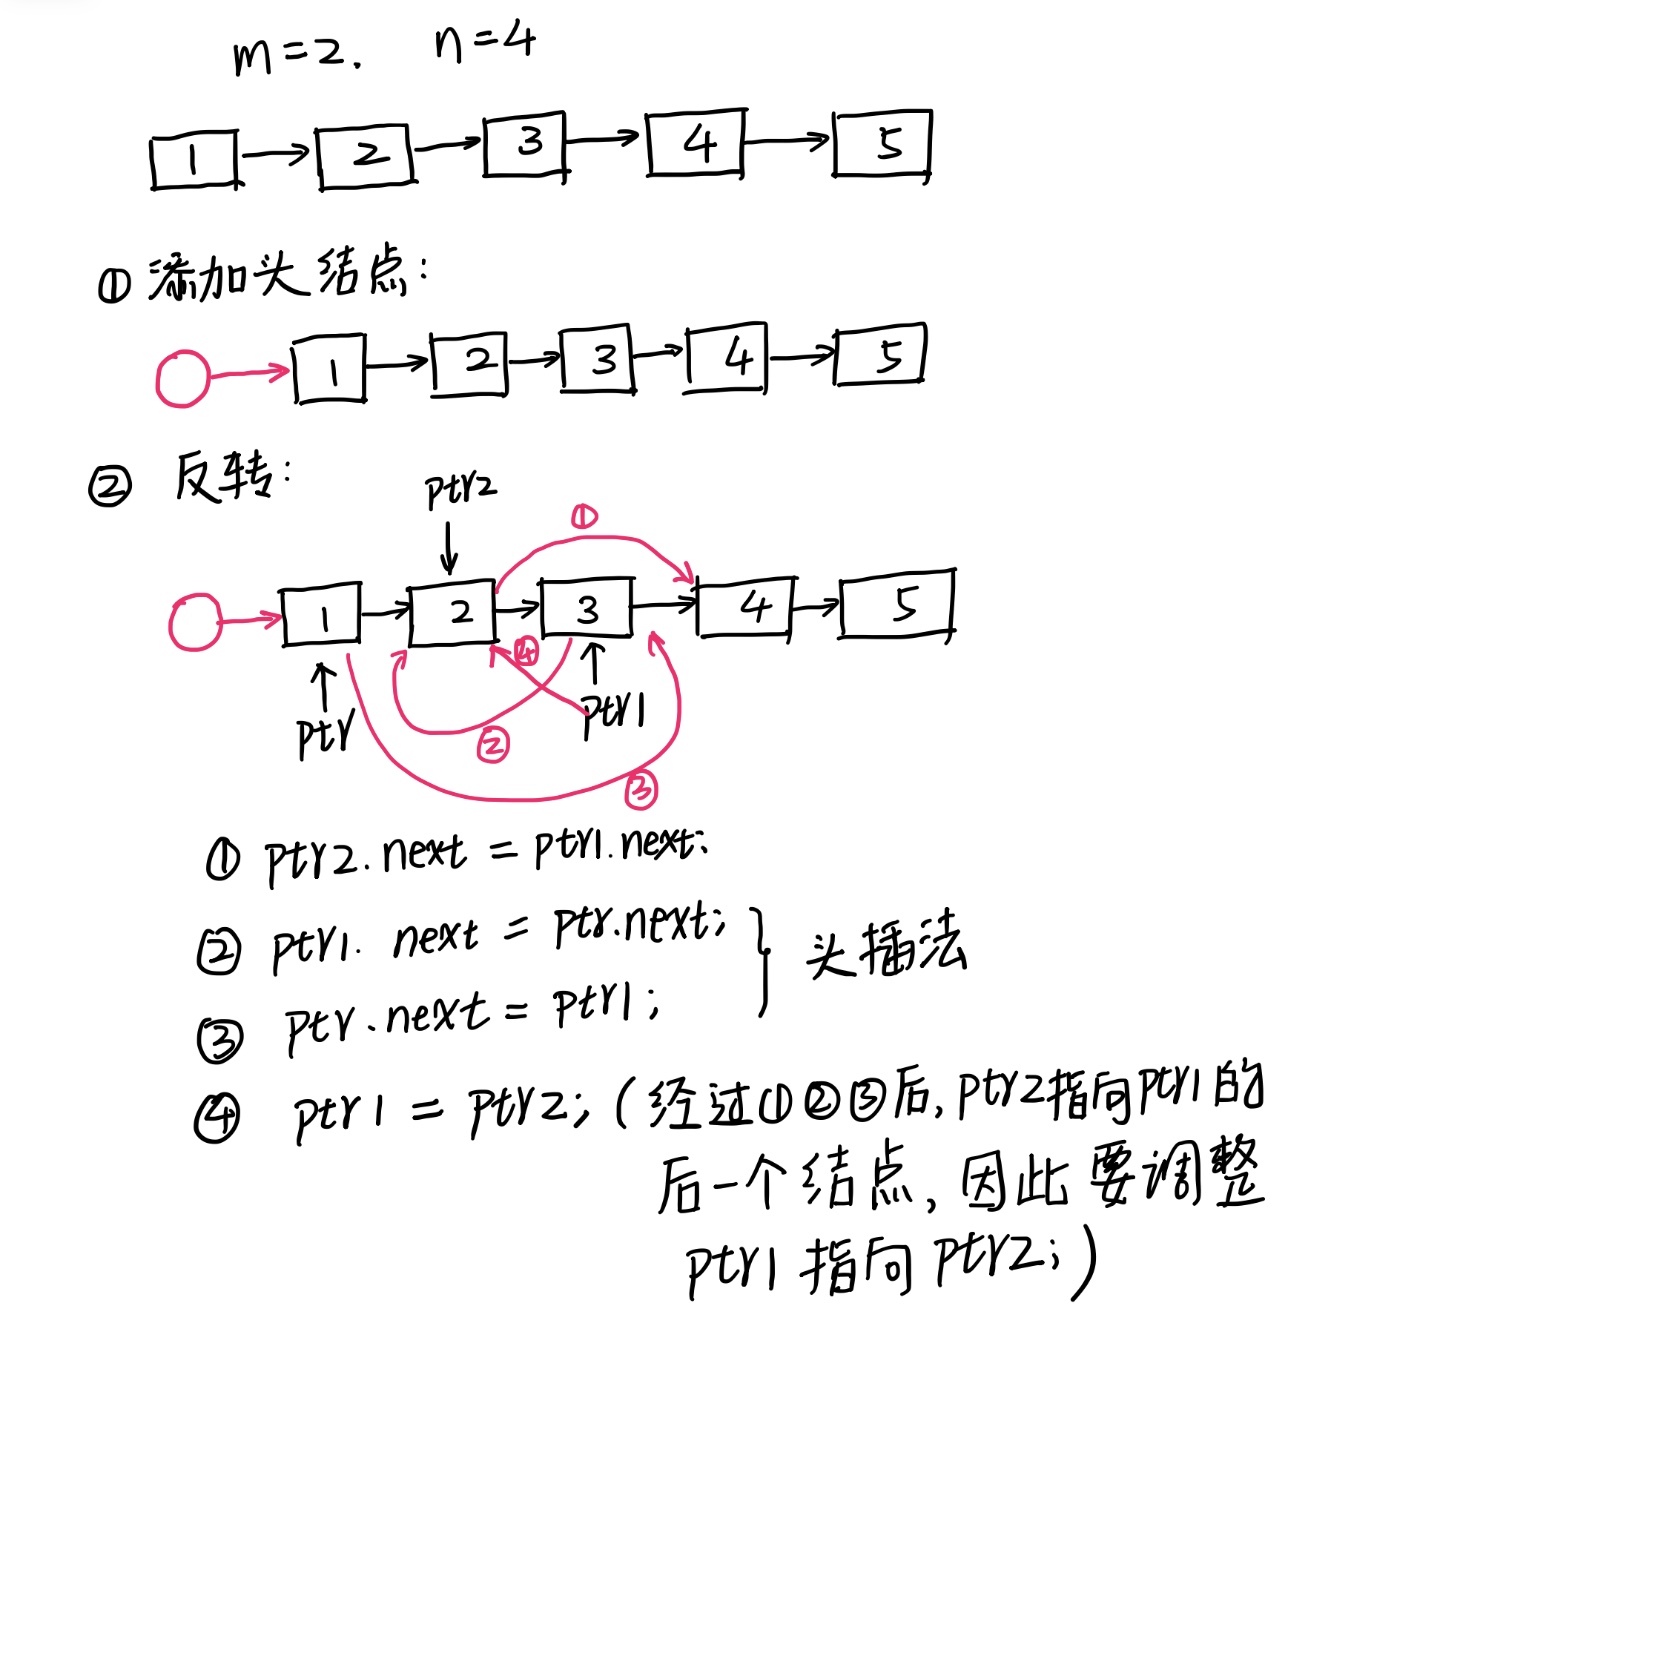 m=2.  n=4
1 2 3 4 5
① 添加头结点:
1 2 3 4 5
② 反转:
ptr2
①
1 2 3 4 5
④
ptr ptr1
②
③
① ptr2.next = ptr1.next;
② ptr1.next = ptr.next;
头插法
③ ptr.next = ptr1;
④ ptr1 = ptr2; (经过①②③后, ptr2指向ptr1的
后一个结点, 因此要调整
ptr1指向ptr2;)